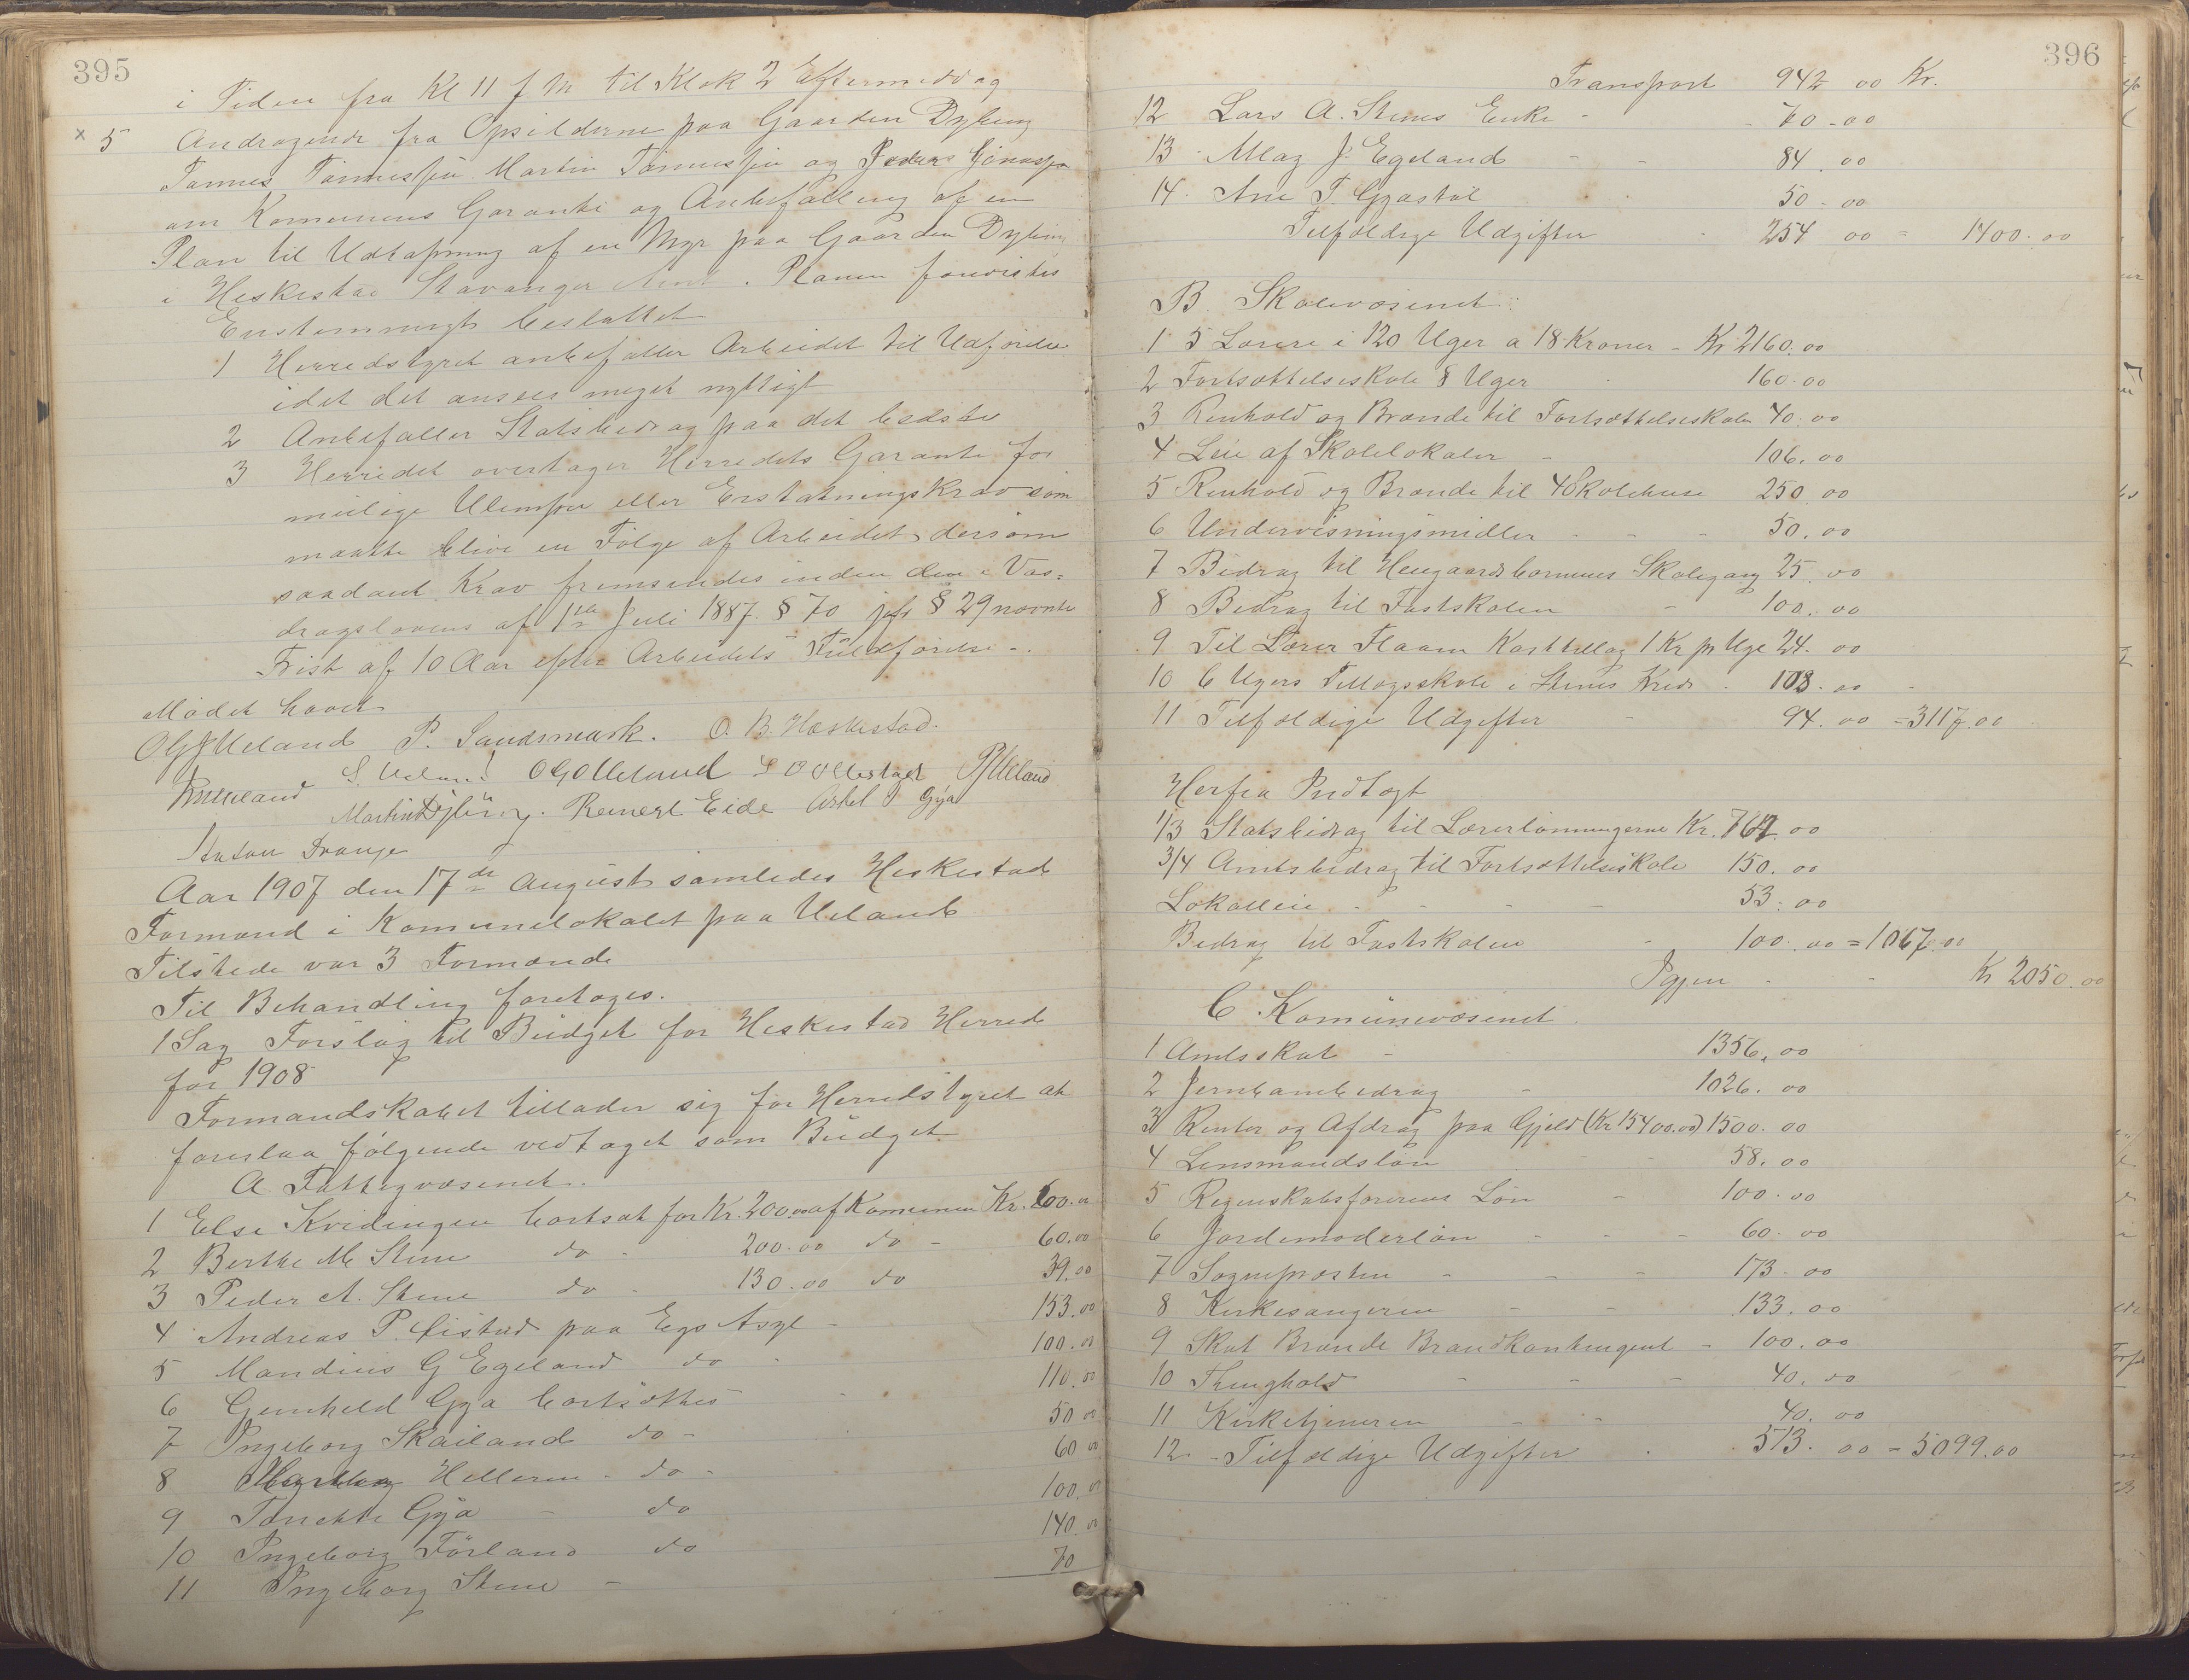 395
i Tiden fra Kl 11 f M til Klok 2 Eftermiddag
x 5 Andragende fra Opsidderne paa Gaarden Dybing
Tønnes Tønnessen Martin Tønnessen og Peder Jonassen
om Komunens Garanti og Anbefalling af en
Plan til Udtapning af en Myr paa Gaarden Dybing
i Heskestad Stavanger Amt. Planen forevistes
Enstemmigt besluttet
1 Herredstyret anbefaller Arbeidet til Udførelse
idet det ansees meget nyttigt
2 Anbefaller Statsbedrag paa det bedste
3 Herredet overtager Herredets Garanti for
mulige Ulemper eller Erstatningskrav som
maatte blive en Følge af Arbeidet dersom
saadant Krav fremsendes inden den i Vas-
dragslovens af 1ste Juli 1887. § 70 jfr § 29 nævnte
Frist af 10 Aar efter Arbeidets Fuldførelse -.
Mødet hævet
OGJUeland P. Sandsmark. O. B. Hæskestad.
S. Ueland OGOUeland POUeland
Martin Dybing. Reinert Eide Askel P Gya
Anton Drange
Aar 1907 den 17de August samledes Heskestad
Formænd i Komunelokalet paa Ueland
Tilstede var 3 Formænd
Til Behandling foretoges.
1 Sag Forslag til Budget for Heskestad Herred
for 1908
Formandskabet tillader sig for Herredstyret at
foreslaa følgende vedtaget som Budget
A. Fattigvæsenet.
1 Else Kvidingen bortsat for Kr. 200.00 af Komunen Kr. 60.00
2 Berthe M Stene do - 200.00 do - 60.00
3 Peder A. Stene do - 130.00 do 39.00
4 Andreas P. Eistad paa Egs Asyl - 153.00
5 Mandius G Egeland do - 100.00
6 Gunhild Gya bortsættes - 110.00
7 Ingeborg Skailand do - 50 00
8 Helleren - do - 60 00
9 Tønette Gya - do 100.00
10 Ingeborg Førland do 140.00
11 Ingeborg Stene - 70
396
Transport 942 00 Kr.
12 Lars A. Stenes Enke - 70-00
13 Mag J. Egeland - - 84.00
14. Ane T. Gyastøl 50-00
Tilfældige Udgifter - 254 00 = 1400.00
B Skolevæsenet:
1 5 Lærere i 120 Uger a 18 Kroner - Kr 2160.00
2 Fortsættelseskole 8 Uger 160.00
3 Renhold og Brænde til Fortsættelseskolen 40.00
4 Leie af Skolelokaler - 106.00
5 Renhold og Brænde til 4 Skolehuse 250.00
6 Undervisningsmidler - - - 50.00
7 Bidrag til Heegaardsbørnenes Skolegang 25.00
8 Bidrag til Fastskolen - 100.00
9 Til Lærer Flaam Kosttillæg 1 Kr pr Uge 24.00
10 6 Ugers Tillægsskole i Stenes Kreds - 108.00 -
11 Tilfældige Udgifter - 94.00 = 3117.00
Herfra Indtægt
1/3 Statsbidrag til Lærerlønningerne Kr. 764.00
3/4 Amtsbidrag til Fortsættelseskole 150.00
Lokalleie - - - - 53.00
Bedrag til Fastskolen - 100.00 = 1067.00
Igjen - - Kr 2050.00
C. Komünevæsenet.
1 Amtsskat - 1356.00
2 Jernbanebedrag - 1026.00
3 Renter og Afdrag paa Gjeld (Kr 15400.00) 1500.00
4 Lensmandsløn - - 58.00
5 Regnskabsførerens Løn - 100.00
6 Jordemoderløn - - - 60.00
7 Sognepræsten - - - 173.00
8 Kirkesangeren - - 133.00
9 Skat Brænde Brandkontingent - 100.00
10 Thinghold - - - 40.00
11 Kirketjeneren - - 40.00
12 - Tilfældige Udgifter - 513.00 - 5099.00